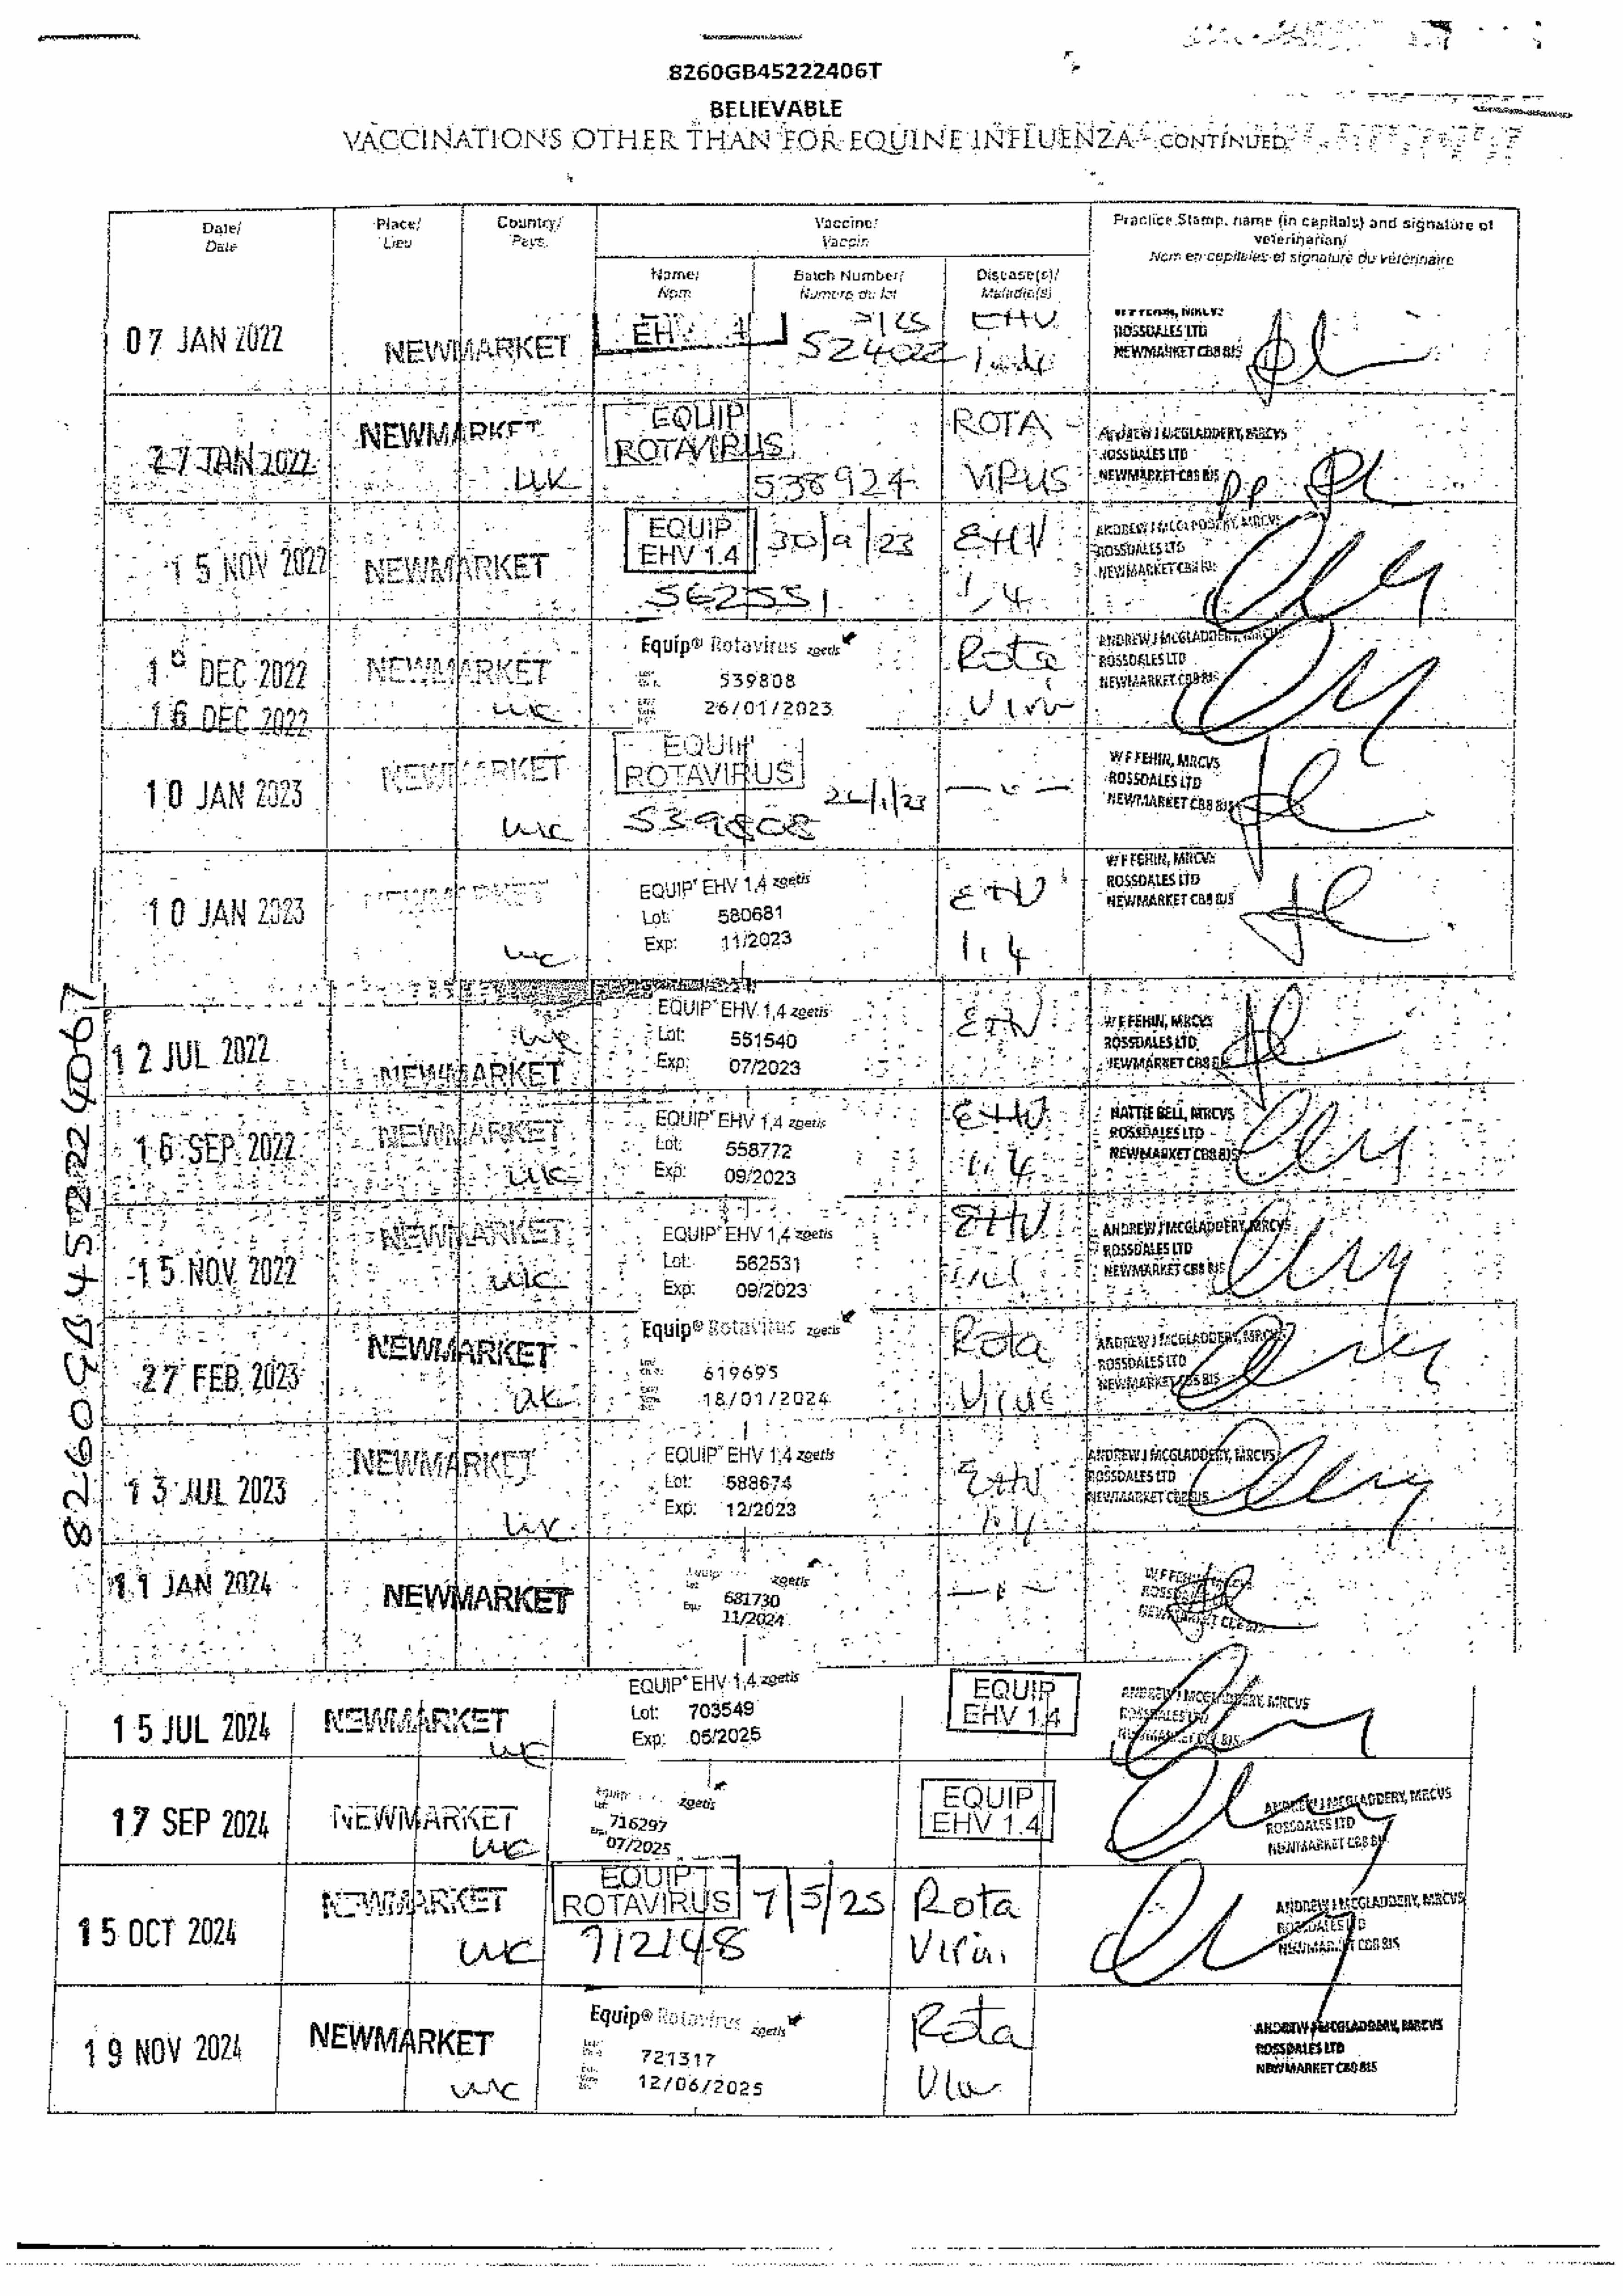 8260GB45222406T
BELIEVABLE
VACCINATIONS OTHER THAN FOR EQUINE INFLUENZA - CONTINUED
Date/ Date
Place/ Lieu
Country/ Pays
Vaccine/ Vaccin
Name/ Nom
Batch Number/ Numero du lot
Disease(s)/ Maladie(s)
Practice Stamp, name (in capitals) and signature of veterinarian/
Nom en capitales et signature du vétérinaire
07 JAN 2022 NEWMARKET EHV 524022 EHV
W F FEHIN, MRCVS
ROSSDALES LTD
NEWMARKET CB8 8JS
27 JAN 2022 NEWMARKET UK EQUIP ROTAVIRUS 538924 ROTA VIRUS
ANDREW J MCGLADDERY, MRCVS
ROSSDALES LTD
NEWMARKET CB8 8JS
pp
15 NOV 2022 NEWMARKET EQUIP EHV 1.4 30/9/23 562551 EHV 1,4
ANDREW J MCGLADDERY, MRCVS
ROSSDALES LTD
NEWMARKET CB8 8JS
DEC 2022
16 DEC 2022 NEWMARKET UK Equip® Rotavirus zoetis 539808 26/01/2023 Rota
ANDREW J MCGLADDERY, MRCVS
ROSSDALES LTD
NEWMARKET CB8 8JS
10 JAN 2023 NEWMARKET UK EQUIP ROTAVIRUS 539808 - " -
W F FEHIN, MRCVS
ROSSDALES LTD
NEWMARKET CB8 8JS
10 JAN 2023 NEWMARKET UK EQUIP® EHV 1,4 zoetis
Lot: 580681
Exp: 11/2023
EHV 1.4
W F FEHIN, MRCVS
ROSSDALES LTD
NEWMARKET CB8 8JS
12 JUL 2022 UK NEWMARKET EQUIP® EHV 1,4 zoetis
Lot: 551540
Exp: 07/2023
EHV
W F FEHIN, MRCVS
ROSSDALES LTD
NEWMARKET CB8 8JS
16 SEP 2022 NEWMARKET UK EQUIP® EHV 1,4 zoetis
Lot: 558772
Exp: 09/2023
EHV 1.4
HATTIE BELL, MRCVS
ROSSDALES LTD
NEWMARKET CB8 8JS
15 NOV 2022 NEWMARKET UK EQUIP® EHV 1,4 zoetis
Lot: 562531
Exp: 09/2023
EHV
ANDREW J MCGLADDERY, MRCVS
ROSSDALES LTD
NEWMARKET CB8 8JS
27 FEB 2023 NEWMARKET UK Equip® Rotavirus zoetis
619695
18/01/2024
Rota Virus
ANDREW J MCGLADDERY, MRCVS
ROSSDALES LTD
NEWMARKET CB8 8JS
13 JUL 2023 NEWMARKET UK EQUIP® EHV 1,4 zoetis
Lot: 588674
Exp: 12/2023
EHV 1.4
ANDREW J MCGLADDERY, MRCVS
ROSSDALES LTD
NEWMARKET CB8 8JS
11 JAN 2024 NEWMARKET Equip zoetis
681730
11/2024
W F FEHIN
ROSSDALES
NEWMARKET CB8 8JS
15 JUL 2024 NEWMARKET UK EQUIP® EHV 1,4 zoetis
Lot: 703549
Exp: 05/2025
EQUIP EHV 1.4
ANDREW J MCGLADDERY, MRCVS
ROSSDALES LTD
NEWMARKET CB8 8JS
17 SEP 2024 NEWMARKET UK Equip zoetis
716297
07/2025
EQUIP EHV 1.4
ANDREW J MCGLADDERY, MRCVS
ROSSDALES LTD
NEWMARKET CB8 8JS
15 OCT 2024 NEWMARKET UK EQUIP ROTAVIRUS 7/5/25 712148 Rota
ANDREW J MCGLADDERY, MRCVS
ROSSDALES LTD
NEWMARKET CB8 8JS
19 NOV 2024 NEWMARKET UK Equip® Rotavirus zoetis
721317
12/06/2025
Rota
ANDREW J MCGLADDERY, MRCVS
ROSSDALES LTD
NEWMARKET CB8 8JS
8260GB45222406T